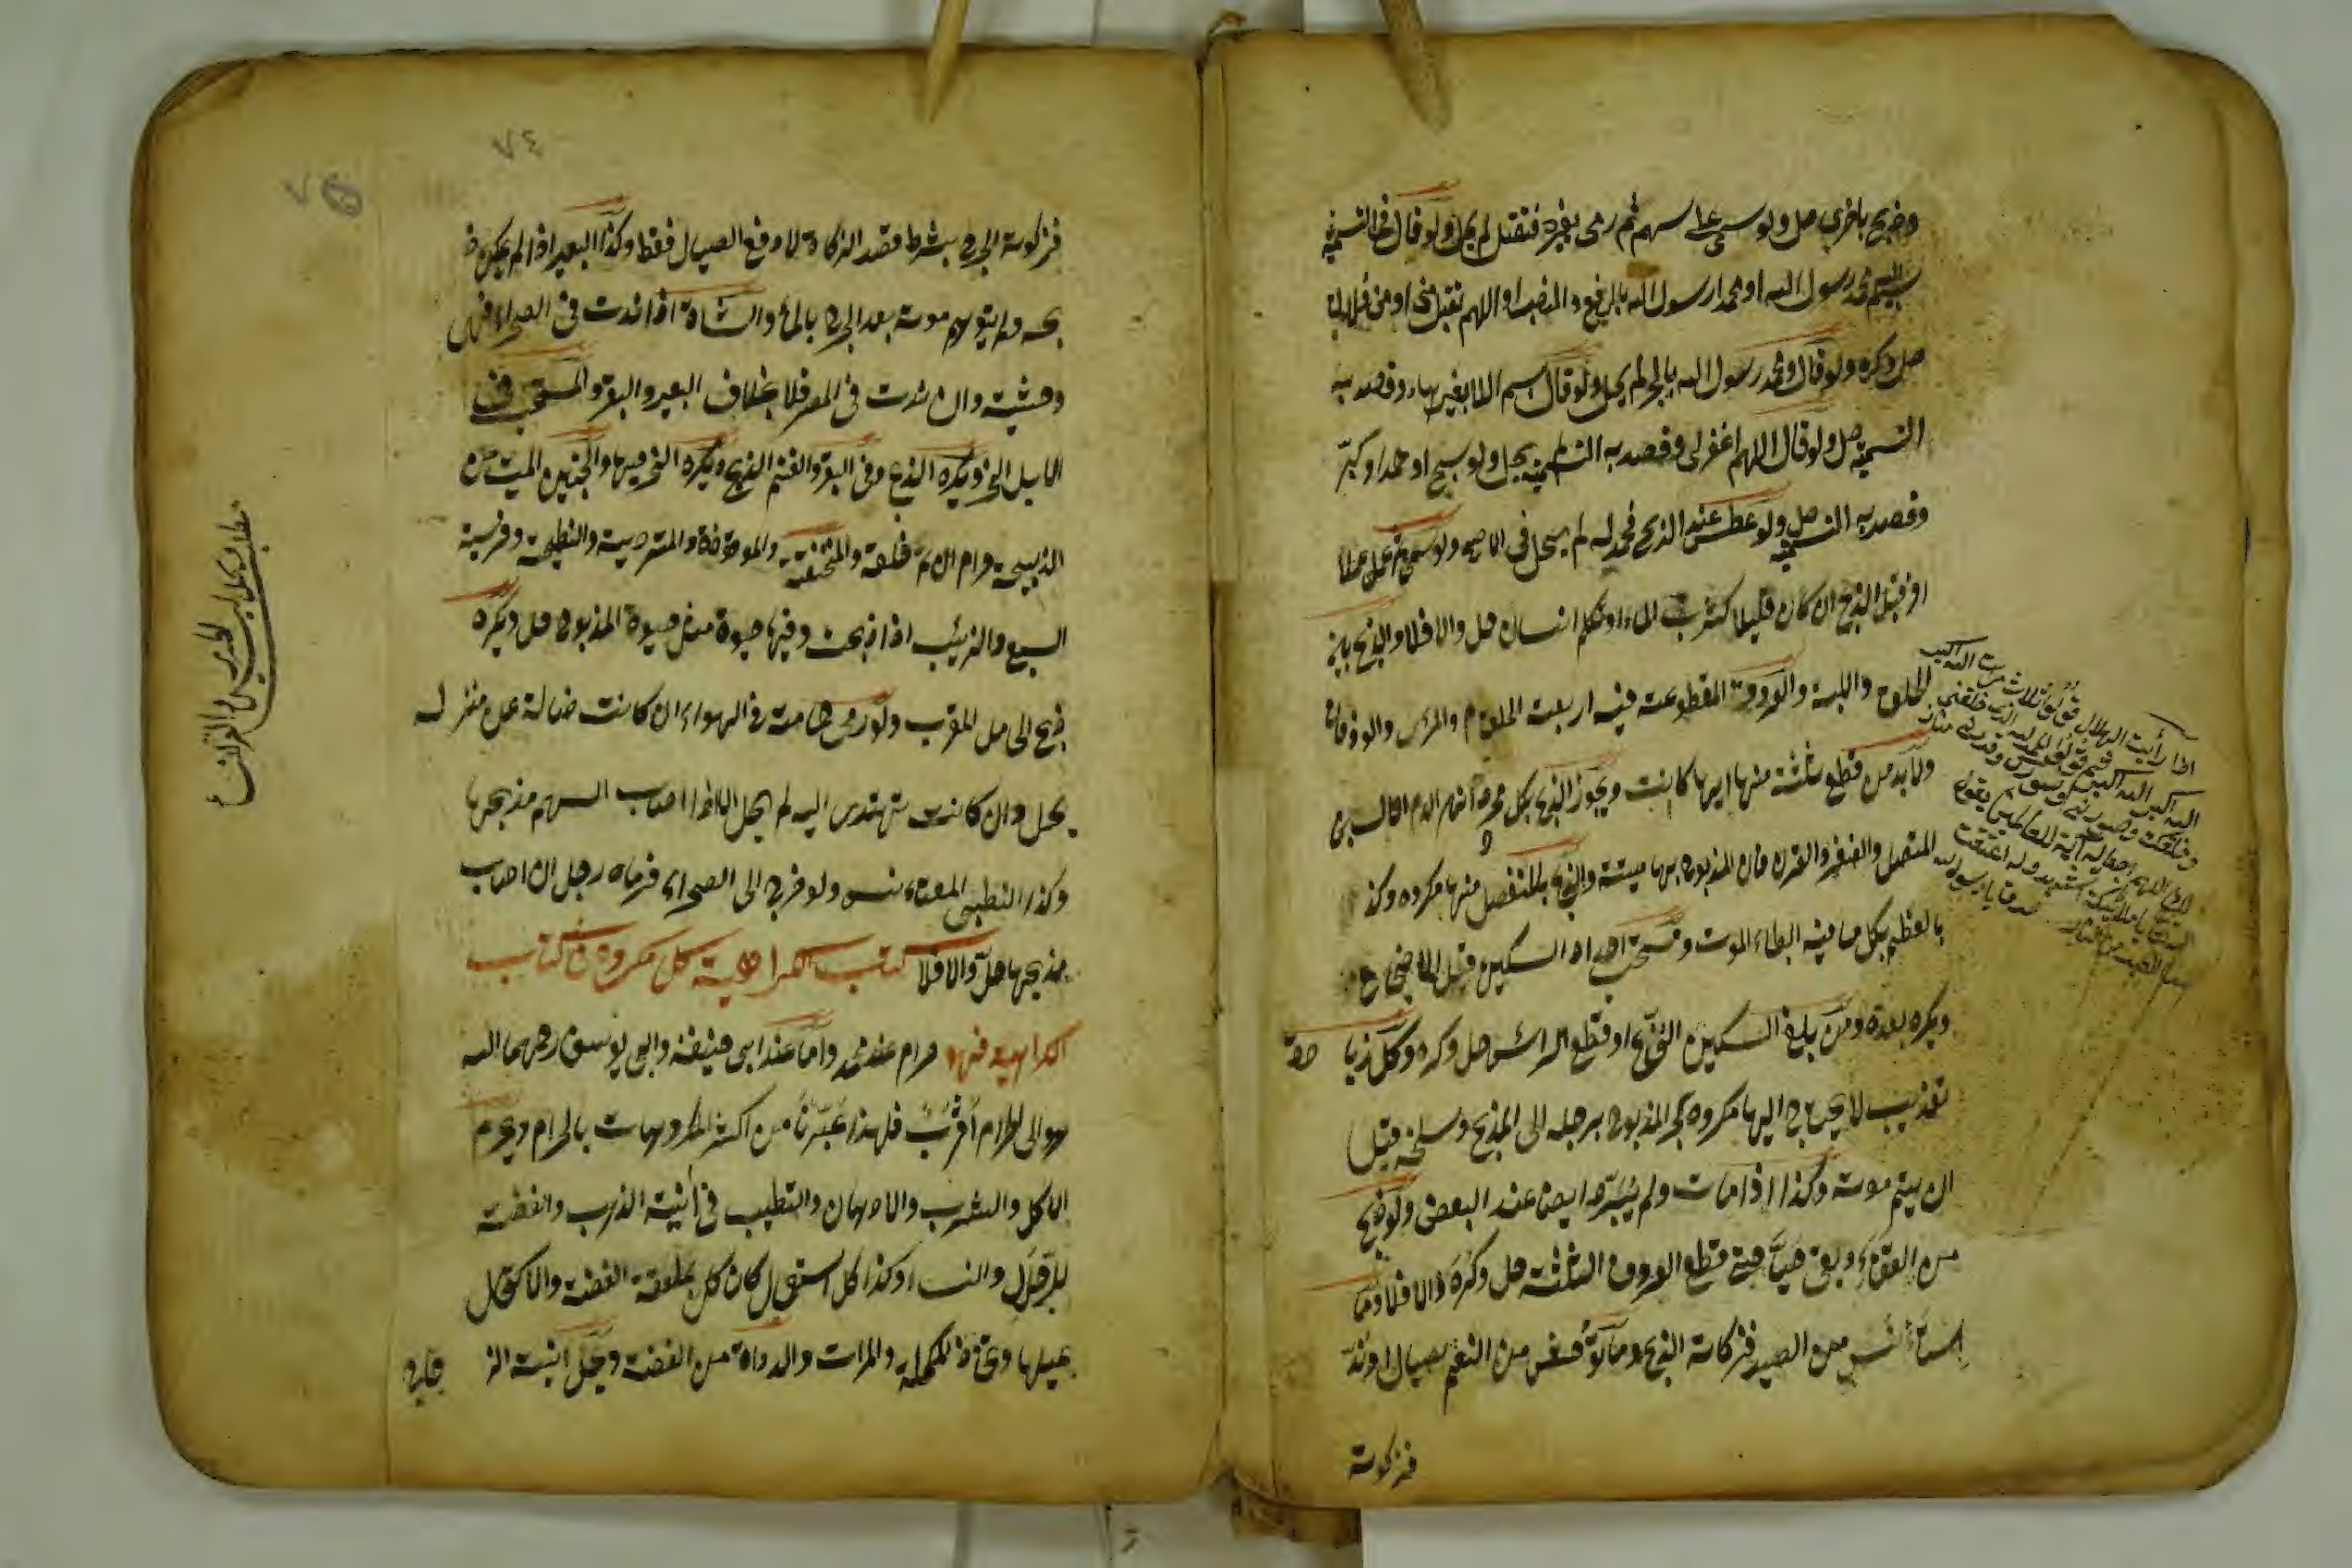 وذبح باخرى حل ولو سمى على سهم ثم رمى بغيره فقتل لم يحل ولو قال في التسمية
بسم الله محمد رسول الله او محمدا رسول الله بالرفع والنصب او اللهم تقبل مني او من فلان
حل وكره ولو قال ومحمد رسول الله بالجر لم يحل ولو قال بسم اللا بغير هاء وقصد به
التسمية حل ولو قال اللهم اغفر لي وقصد به التسمية يحل ولو سبح او حمد او كبر
وقصد به التسمية حل ولو عطس عند الذبح فحمد له لم يحل في الاصح ولو سمى ثم عمل عملا
اخر قبل الذبح ان كان قليلا كشرب الماء او تكلم انسان حل والا فلا والذبح بين
الحلق واللبة والعروق المقطوعة فيه اربعة الحلقوم والمرئ والودجان
ولابد من قطع ثلثة منها ايها كانت ويجوز الذبح بكل محدد انهر الدم الا السن
المتصل والظفر والقرن فان المذبوح بها ميتة والذبح بالمنفصل منها مكروه وكذا
بالعظم بكل ما فيه ابطاء الموت ويستحب احداد السكين قبل الاضجاع
ويكره بعده ومن بلغ السكين النخاع او قطع الرأس حل وكره وكل زيادة
تعذيب لا يحتاج اليها مكروه كجر المذبوح برجله الى المذبح وسلخه قبل
ان يتم موته وكذا اذا مات ولم يبرد ايضا عند البعض ولو ذبح
من القفا وبقي حيا حتى قطع العروق الثلثة حل وكره والا فلا وما
استأنس من الصيد فزكاته الذبح وما توحش من النعم بصيال او ند
فزكوته
اذا رأيت الهلال فقل ثلاث مرات الله اكبر
فزكوته الجرح بشرط قصد الزكاة لا دفع الصيال فقط وكذا البعير اذا لم يمكن ذ
بحه ولم يتوهم موته بعد الجرح بالماء والشاة اذا ندت في الصحراء فهي
وحشية وان ندت في المصر فلا بخلاف البعير والبقر والمستحب في
الابل النحر ويكره الذبح وفي البقر والغنم الذبح ويكره النحر فيهما والجنين الميت من
الذبيحة حرام ان تم خلقه والمنخنقة والموقوذة والمتردية والنطيحة وفريسة
السبع والذئب اذا ذبحت وفيها حيوة مثل حيوة المذبوح حل ويكره
ذبح الحامل المقرب ولو رمى حمامة في الهواء ان كانت ضالة عن منزله
يحل وان كانت تهتدى اليه لم يحل الا اذا اصاب السهم مذبحها
وكذا الظبي المعتاد ولو خرج الى الصحراء فرماه رجل ان اصاب
مذبحها حل والا فلا كتاب الكراهية كل مكروه في كتاب
الكراهية فهو حرام عند محمد واما عند ابي حنيفة وابي يوسف رحمهما الله
هو الى الحرام اقرب فلهذا عبرنا من اكثر المكروهات بالحرام ويحرم
الاكل والشرب والادهان والتطيب في آنية الذهب والفضة
للرجال والنساء وكذا كل استعمال كان كل بملعقة الفضة والاكتحال
بميلها واتخاذ المكحلة والمرآت والدواة من الفضة ويحل آنية الز
جاج